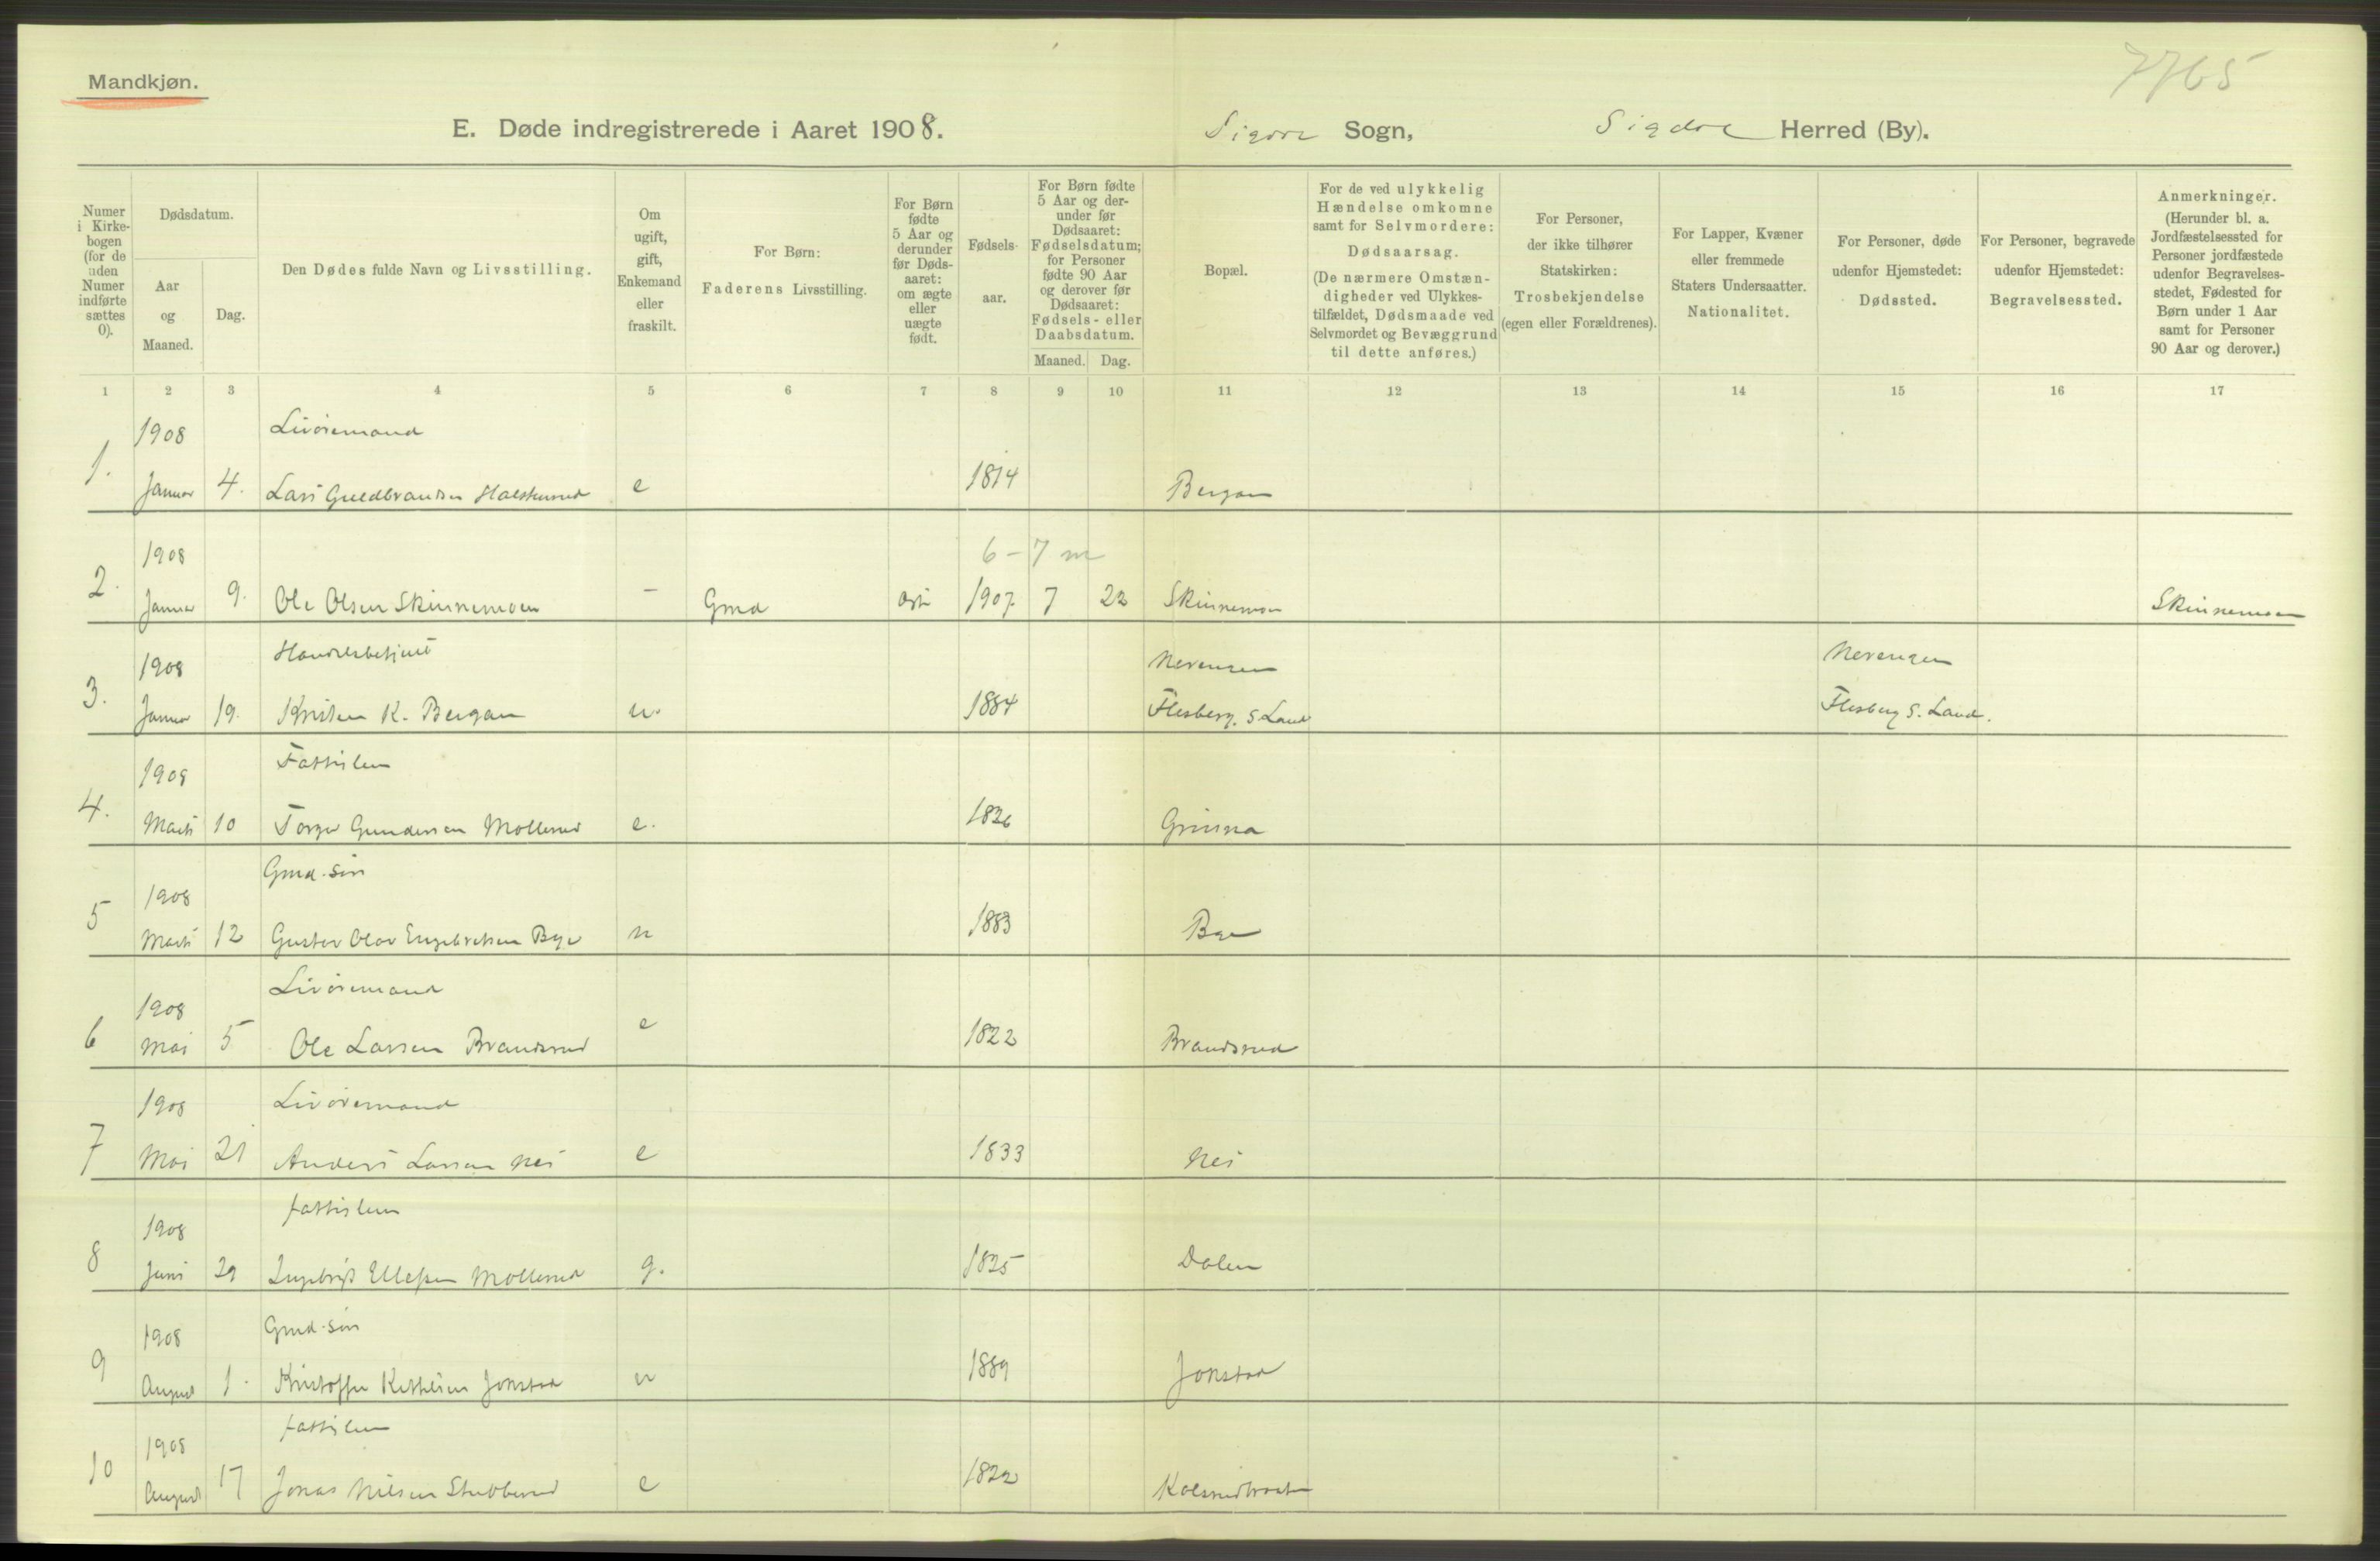 7765
Mandkjøn.
E. Døde indregistrerede i Aaret 1908. Sigdal Sogn, Sigdal Herred (By).
Numer i Kirkebogen (for de uden Numer indførte sættes 0).
Dødsdatum.
Aar og Maaned.
Dag.
Den Dødes fulde Navn og Livsstilling.
Om ugift, gift, Enkemand eller fraskilt.
For Børn: Faderens Livsstilling.
For Børn fødte 5 Aar og derunder før Dødsaaret: om ægte eller uægte født.
Fødselsaar.
For Børn fødte 5 Aar og derunder før Dødsaaret: Fødselsdatum; for Personer fødte 90 Aar og derover før Dødsaaret: Fødsels- eller Daabsdatum.
Maaned. Dag.
Bopæl.
For de ved ulykkelig Hændelse omkomne samt for Selvmordere: Dødsaarsag. (De nærmere Omstændigheder ved Ulykkestilfældet, Dødsmaade ved Selvmordet og Bevæggrund til dette anføres.)
For Personer, der ikke tilhører Statskirken: Trosbekjendelse (egen eller Forældrenes).
For Lapper, Kvæner eller fremmede Staters Undersaatter. Nationalitet.
For Personer, døde udenfor Hjemstedet: Dødssted.
For Personer, begravede udenfor Hjemstedet: Begravelsessted.
Anmerkninger. (Herunder bl. a. Jordfæstelsessted for Personer jordfæstede udenfor Begravelsesstedet, Fødested for Børn under 1 Aar samt for Personer 90 Aar og derover.)
1 2 3 4 5 6 7 8 9 10 11 12 13 14 15 16 17
1908 Livøremand
1. Januar 4. Lars Guldbrandsen Halstensrud e 1814 Bergan
1908 6-7 m
2. Januar 9. Ole Olsen Skinnemoen - Gmd ægte 1907 7 22 Skinnemoen Skinnemoen
1908 Handelsbetjent Nerengen Nerengen
3. Januar 19. Kristen K. Bergan u. 1884 Flesberg. S. Land Flesberg S. Land.
1908 Fattislem
4. Marts 10 Torger Gundersen Mollerud e. 1826 Grinna
1908 Gmd. søn
5 Marts 12 Gustav Olav Engebretsen Bye u 1883 Bye
1908 Livøremand
6 Mai 5 Ole Larsen Brandsrud e 1822 Brandsrud
1908 Livøremand
7 Mai 21 Anders Larsen Nes e 1833 Nes
1908 fattislem
8 Juni 29 Ingebrigt Ellefsen Mollerud g. 1825 Dalen
1908 Gmd. søn
9 August 1. Kristoffer Kittilsen Jonstad u 1889 Jonstad
1908 fattislem
10 August 17 Jonas Nilsen Stubberud e 1822